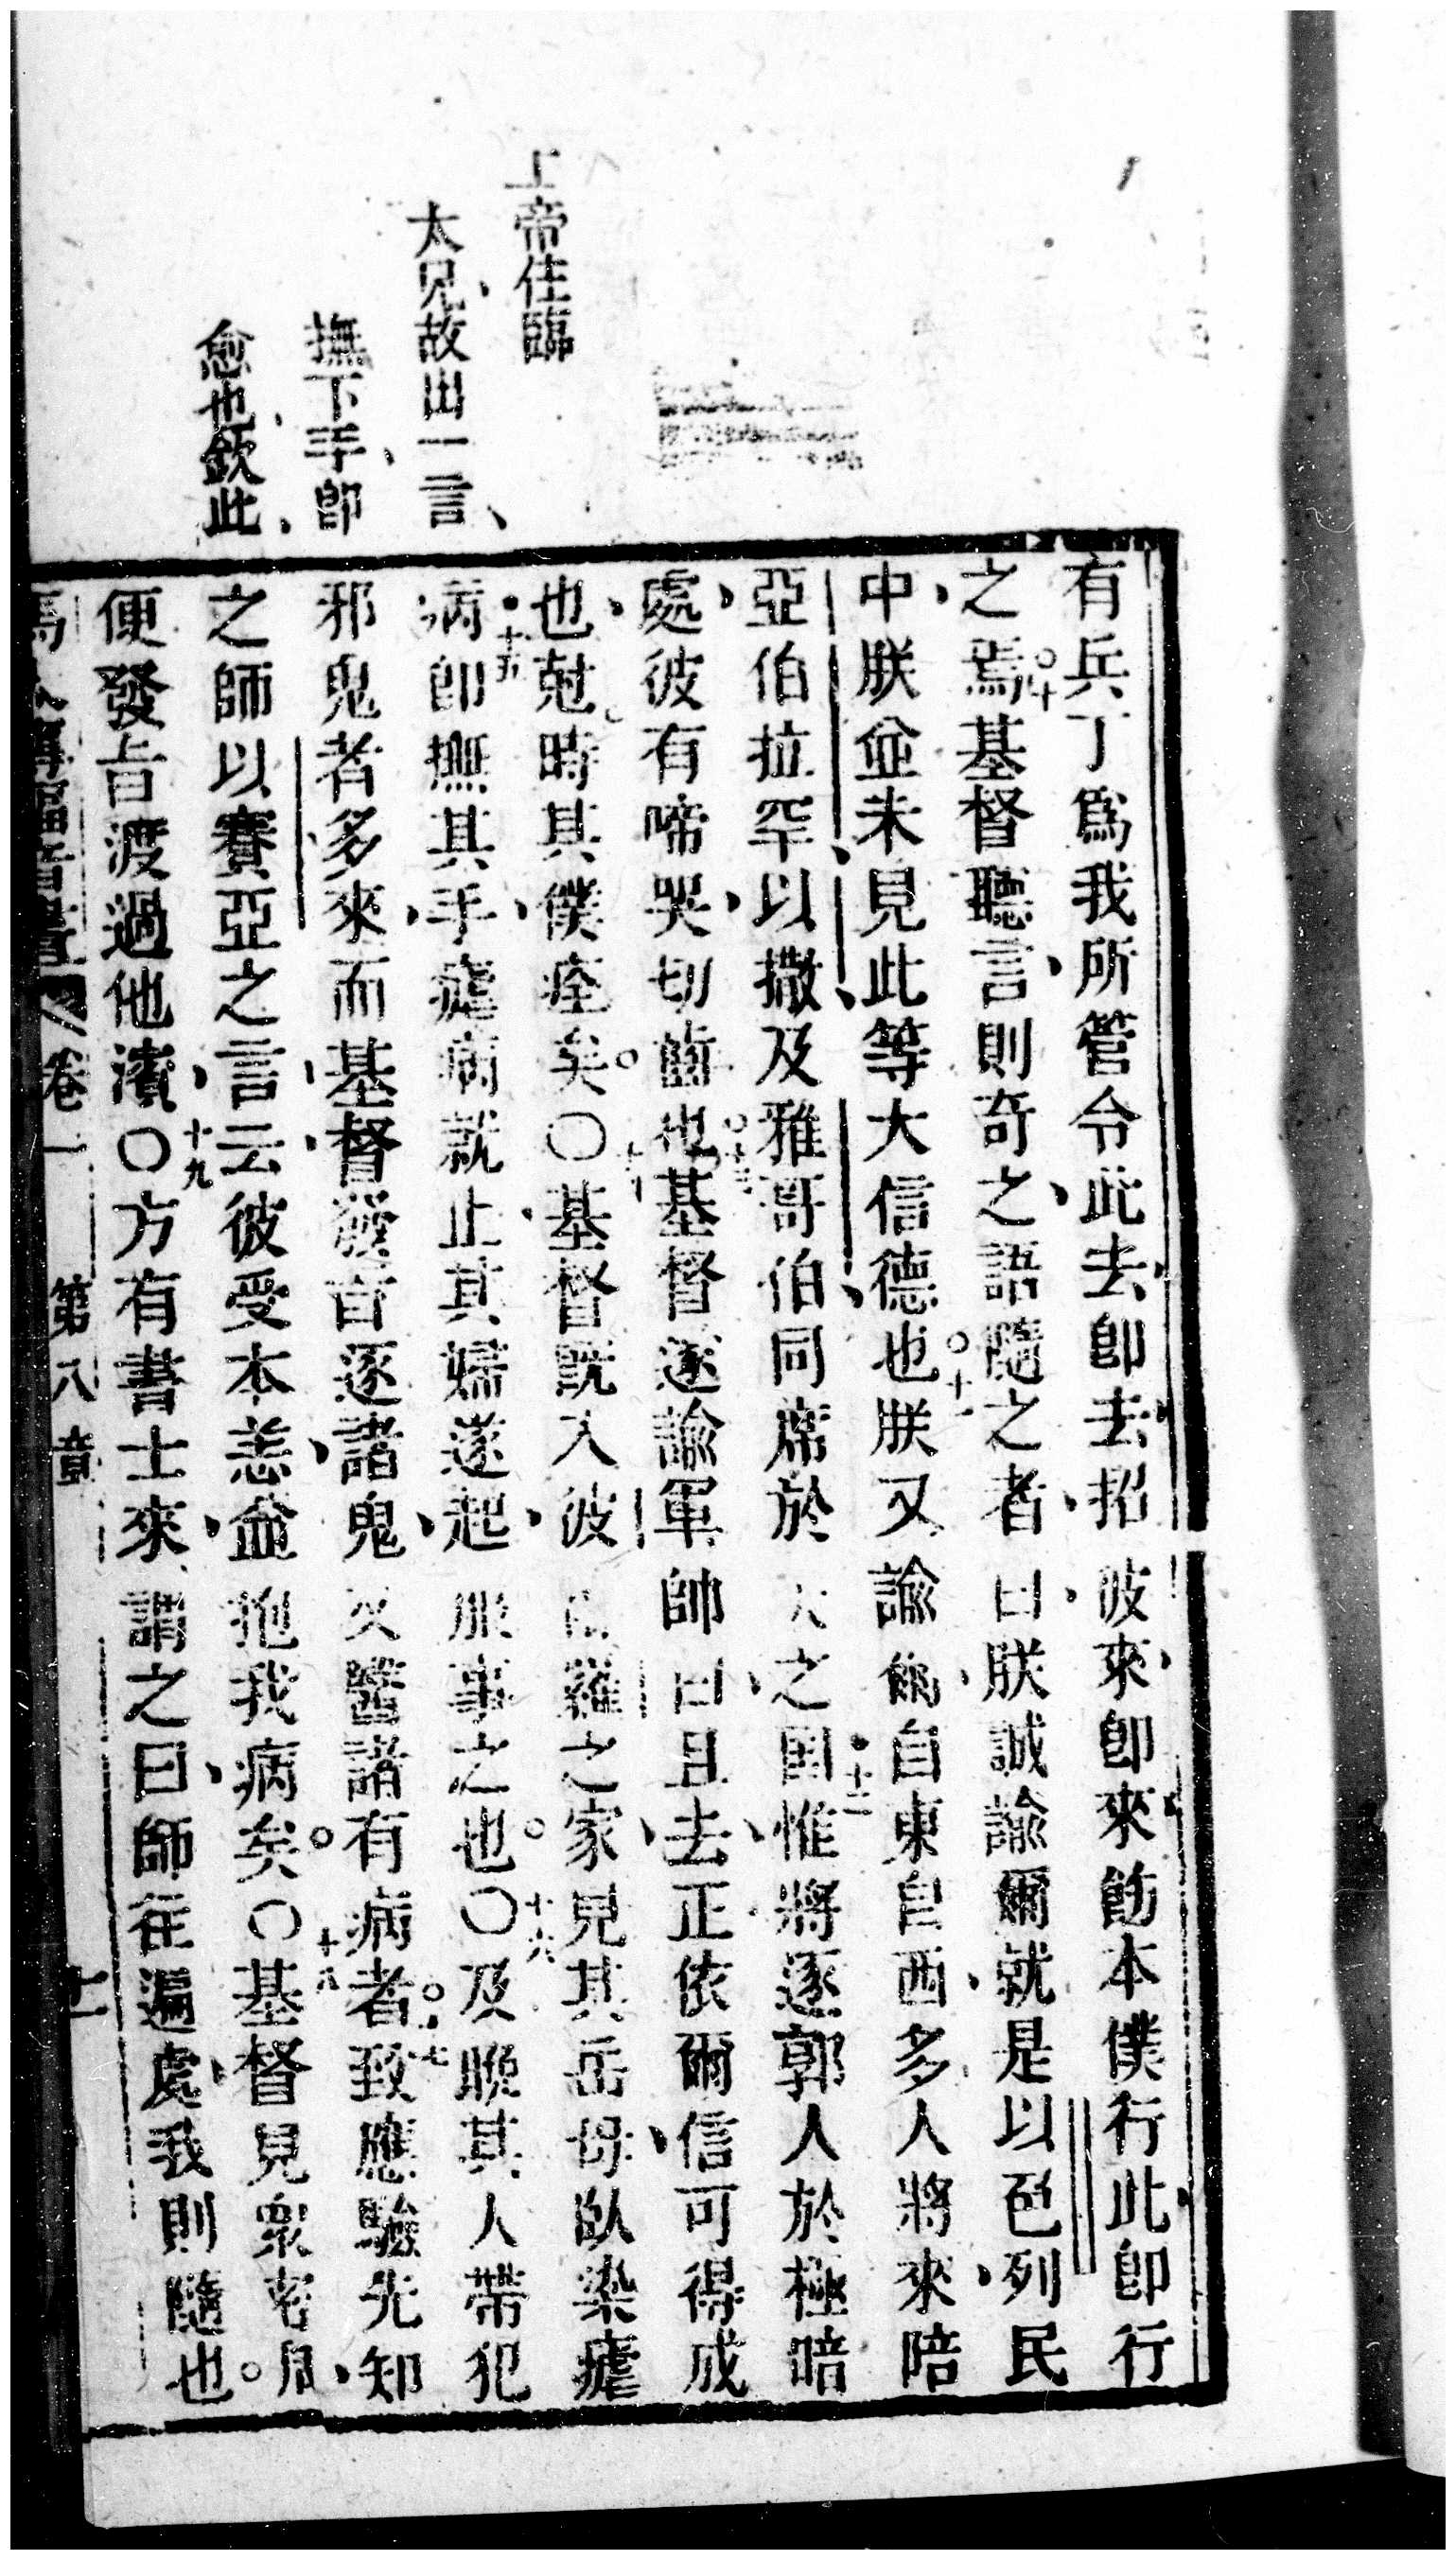 上帝住臨
太兄、故出一言、
撫下手、卽
愈也、欽此、
有兵丁爲我所管令此去、卽去、招彼來、卽來、飭本僕行此、卽行
之焉。十基督聽言、則奇之、語隨之者、曰、朕誠諭爾就是以色列民
中、朕並未見此等大信德也。十一朕又諭爾、自東自西、多人將來、陪
亞伯拉罕、以撒、及雅哥伯、同席於天之國。十二惟將逐郭人於極暗
處、彼有啼哭、切齒也。十三基督遂諭軍帥曰、且去、正依爾信可得成
也、尅時其僕痊矣。〇十四基督旣入彼得羅之家、見其岳母、臥染瘧
病。十五卽撫其手、瘧病就止、其婦遂起、服事之也。〇十六及晚、其人帶犯
邪鬼者多來、而基督發言逐諸鬼、又醫諸有病者。十七致應驗先知
之師以賽亞之言、云、彼受本恙、並抱我病矣。〇十八基督見衆密周、
便發旨渡過他濱、〇十九方有書士來、謂之曰、師、往遍處、我則隨也。
卷一 第八章